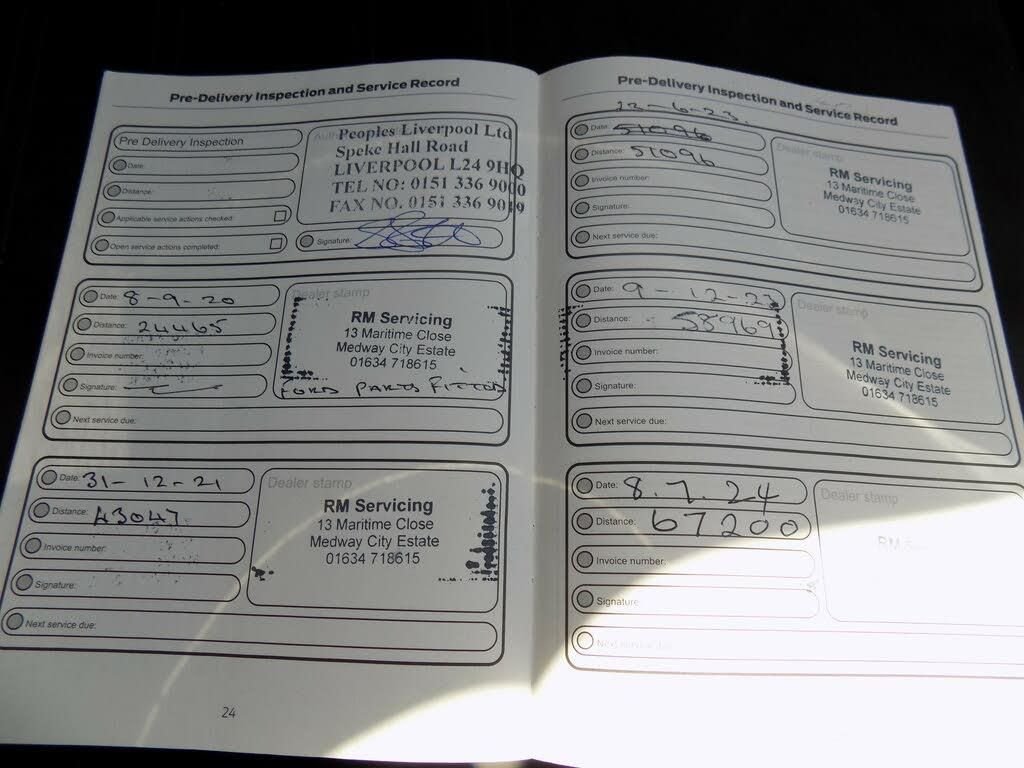 Pre-Delivery Inspection and Service Record
Pre Delivery Inspection
Date:
Distance:
Applicable service actions checked:
Open service actions completed:
Peoples Liverpool Ltd
Speke Hall Road
LIVERPOOL L24 9HQ
TEL NO: 0151 336 9000
FAX NO. 0151 336 9049
Signature:
Date: 8-9-20
Distance: 24465
Invoice number:
Signature:
Next service due:
Dealer stamp
RM Servicing
13 Maritime Close
Medway City Estate
01634 718615
FORD PARTS FITTED
Date: 31-12-21
Distance: 43047
Invoice number:
Signature:
Next service due:
Dealer stamp
RM Servicing
13 Maritime Close
Medway City Estate
01634 718615
24
Pre-Delivery Inspection and Service Record
Date: 51096
Distance: 51096
Invoice number:
Signature:
Next service due:
Dealer stamp
RM Servicing
13 Maritime Close
Medway City Estate
01634 718615
Date: 9-12-23
Distance: 58969
Invoice number:
Signature:
Next service due:
Dealer stamp
RM Servicing
13 Maritime Close
Medway City Estate
01634 718615
Date: 8.7.24
Distance: 67200
Invoice number:
Signature
Next service due:
Dealer stamp
RM